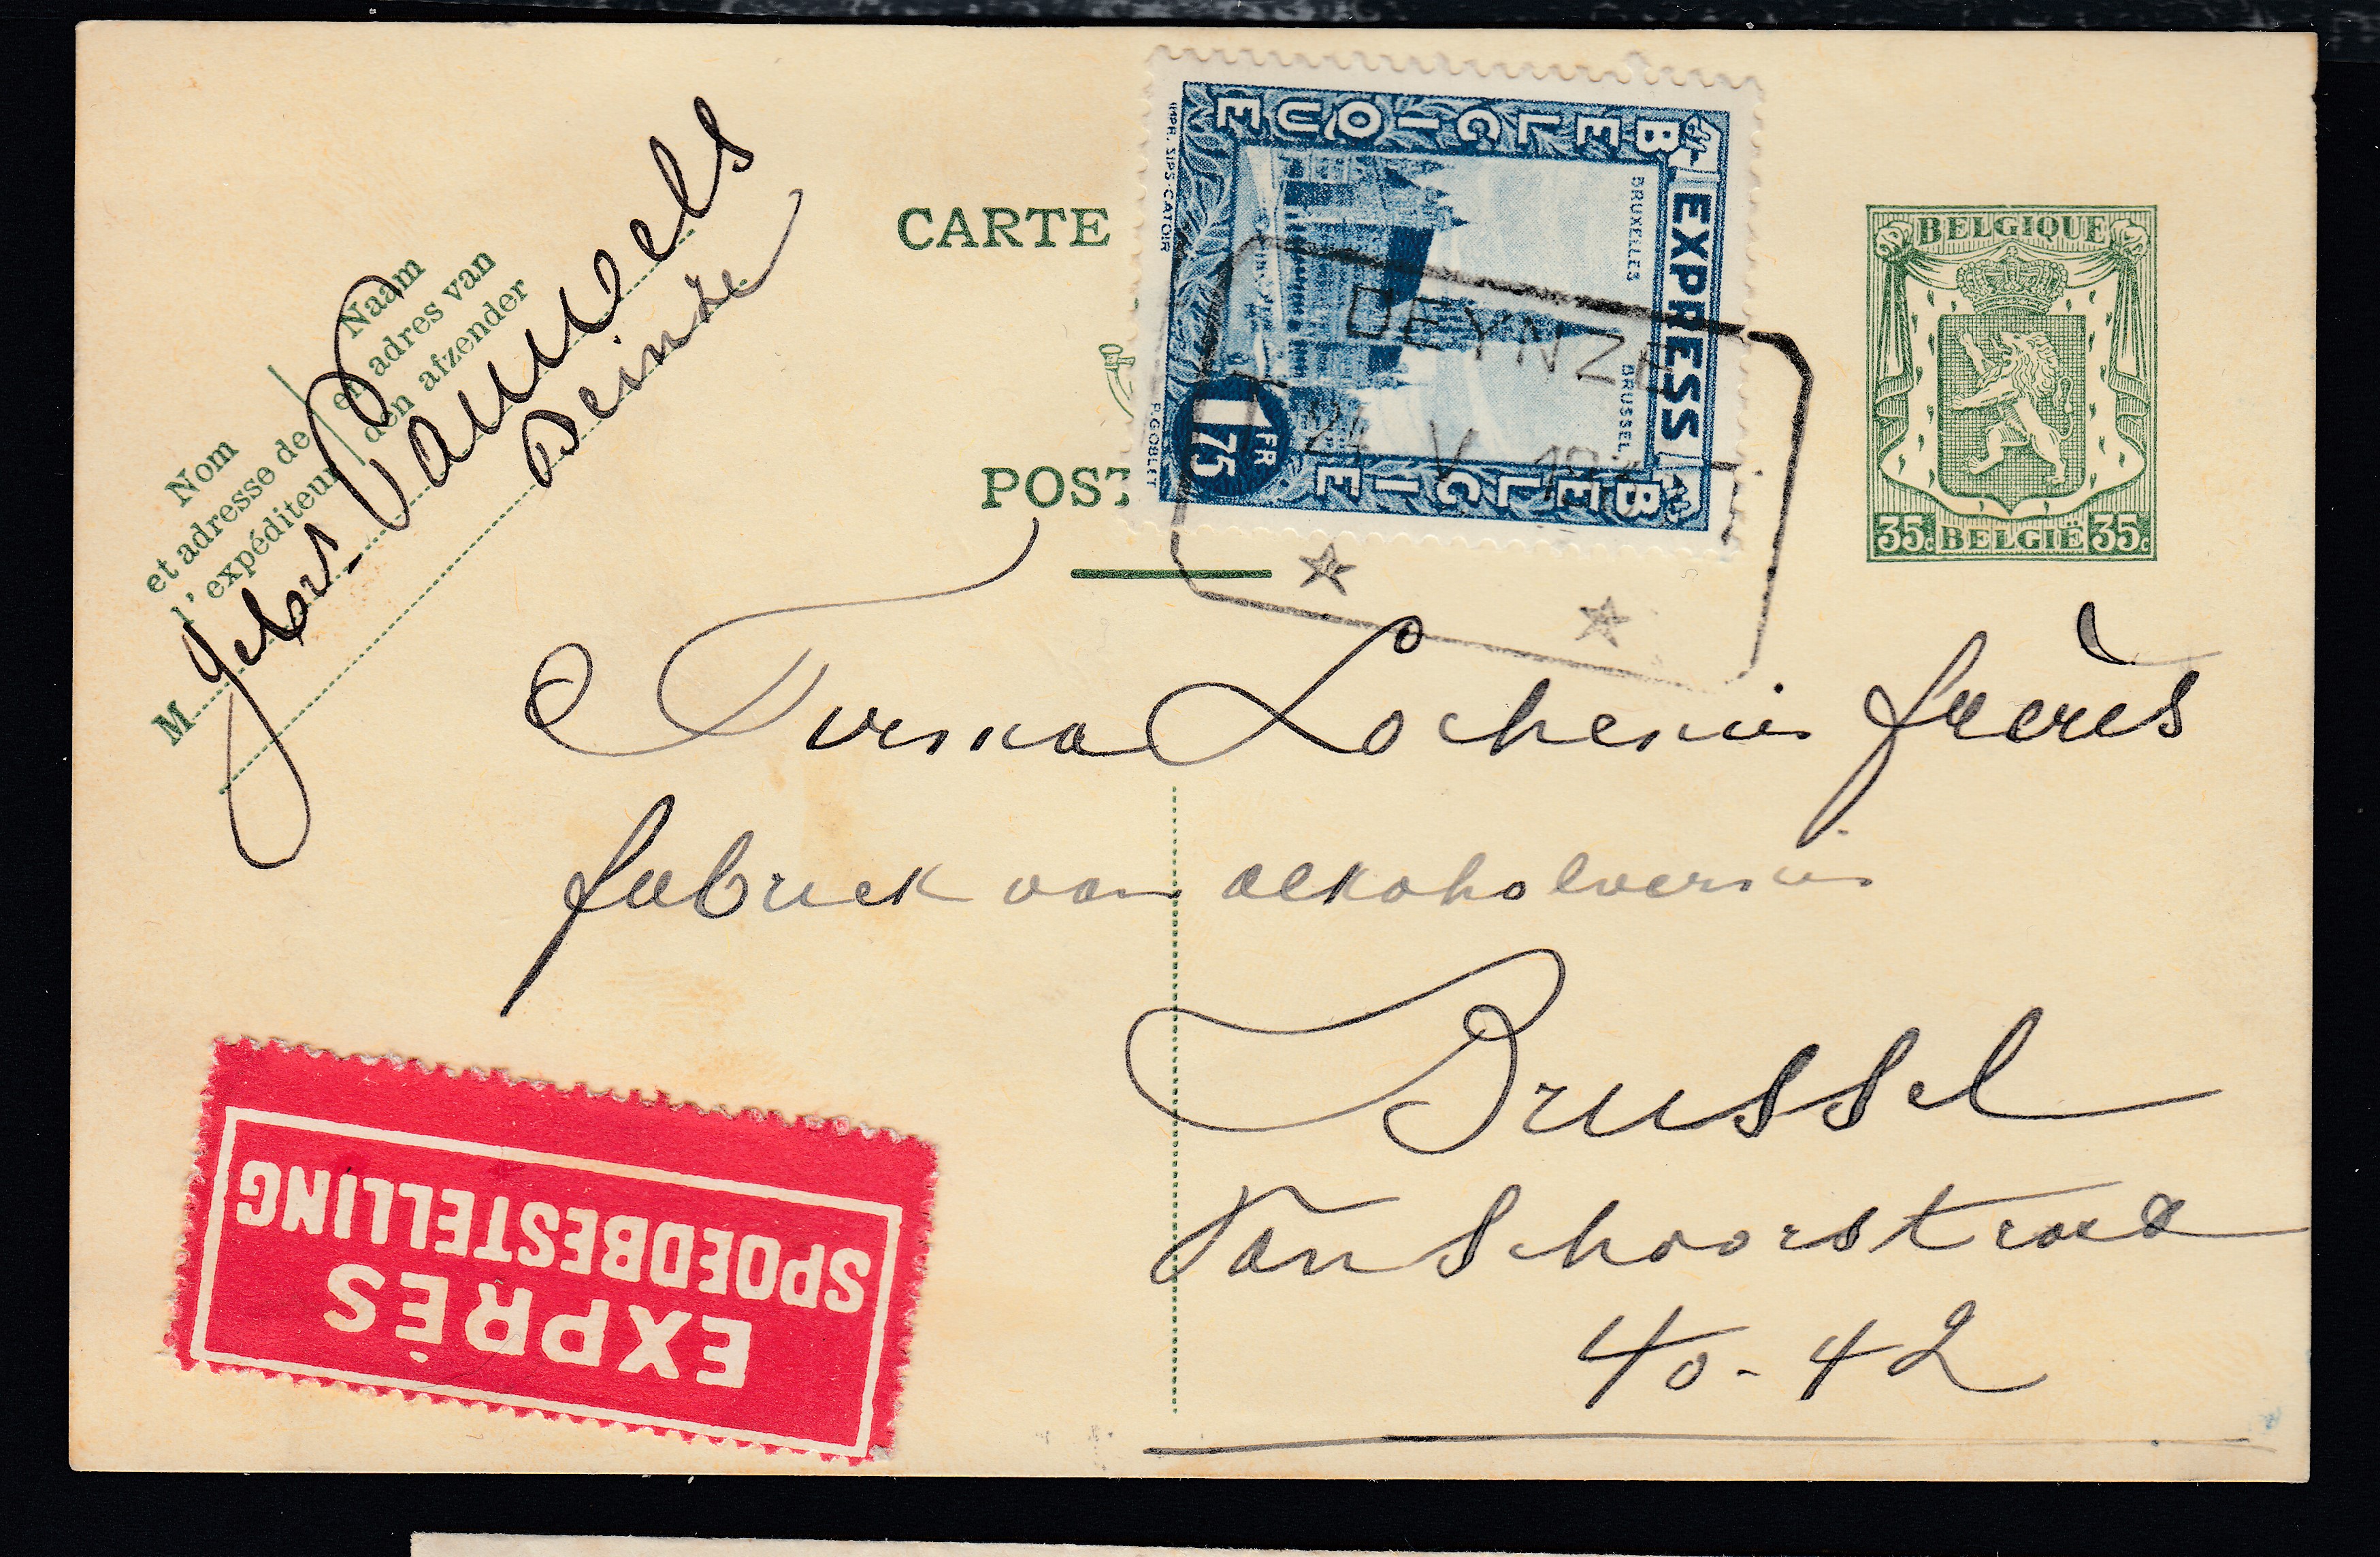 CARTE
POST
Nom
et adresse de
l'expéditeur
Naam
en adres van
den afzender
M Gebrs. Pauwels
Deinze
BELGIQUE
EXPRESS
BRUXELLES
BRUSSEL
1 FR 75
BELGIE
IMPR. SIPS-CATOIR
P. GOBLET
DEYNZE
24 V 193
BELGIQUE
35c BELGIË 35c
Firma Lochenies frères
fabriek van alkoholvernis
Brussel
Van Schoorstraat
40-42
EXPRÈS
SPOEDBESTELLING